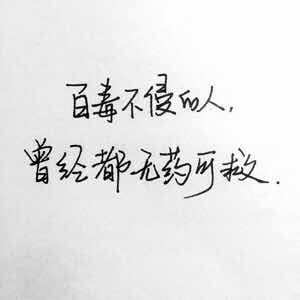 百毒不侵的人，
曾经都无药可救．